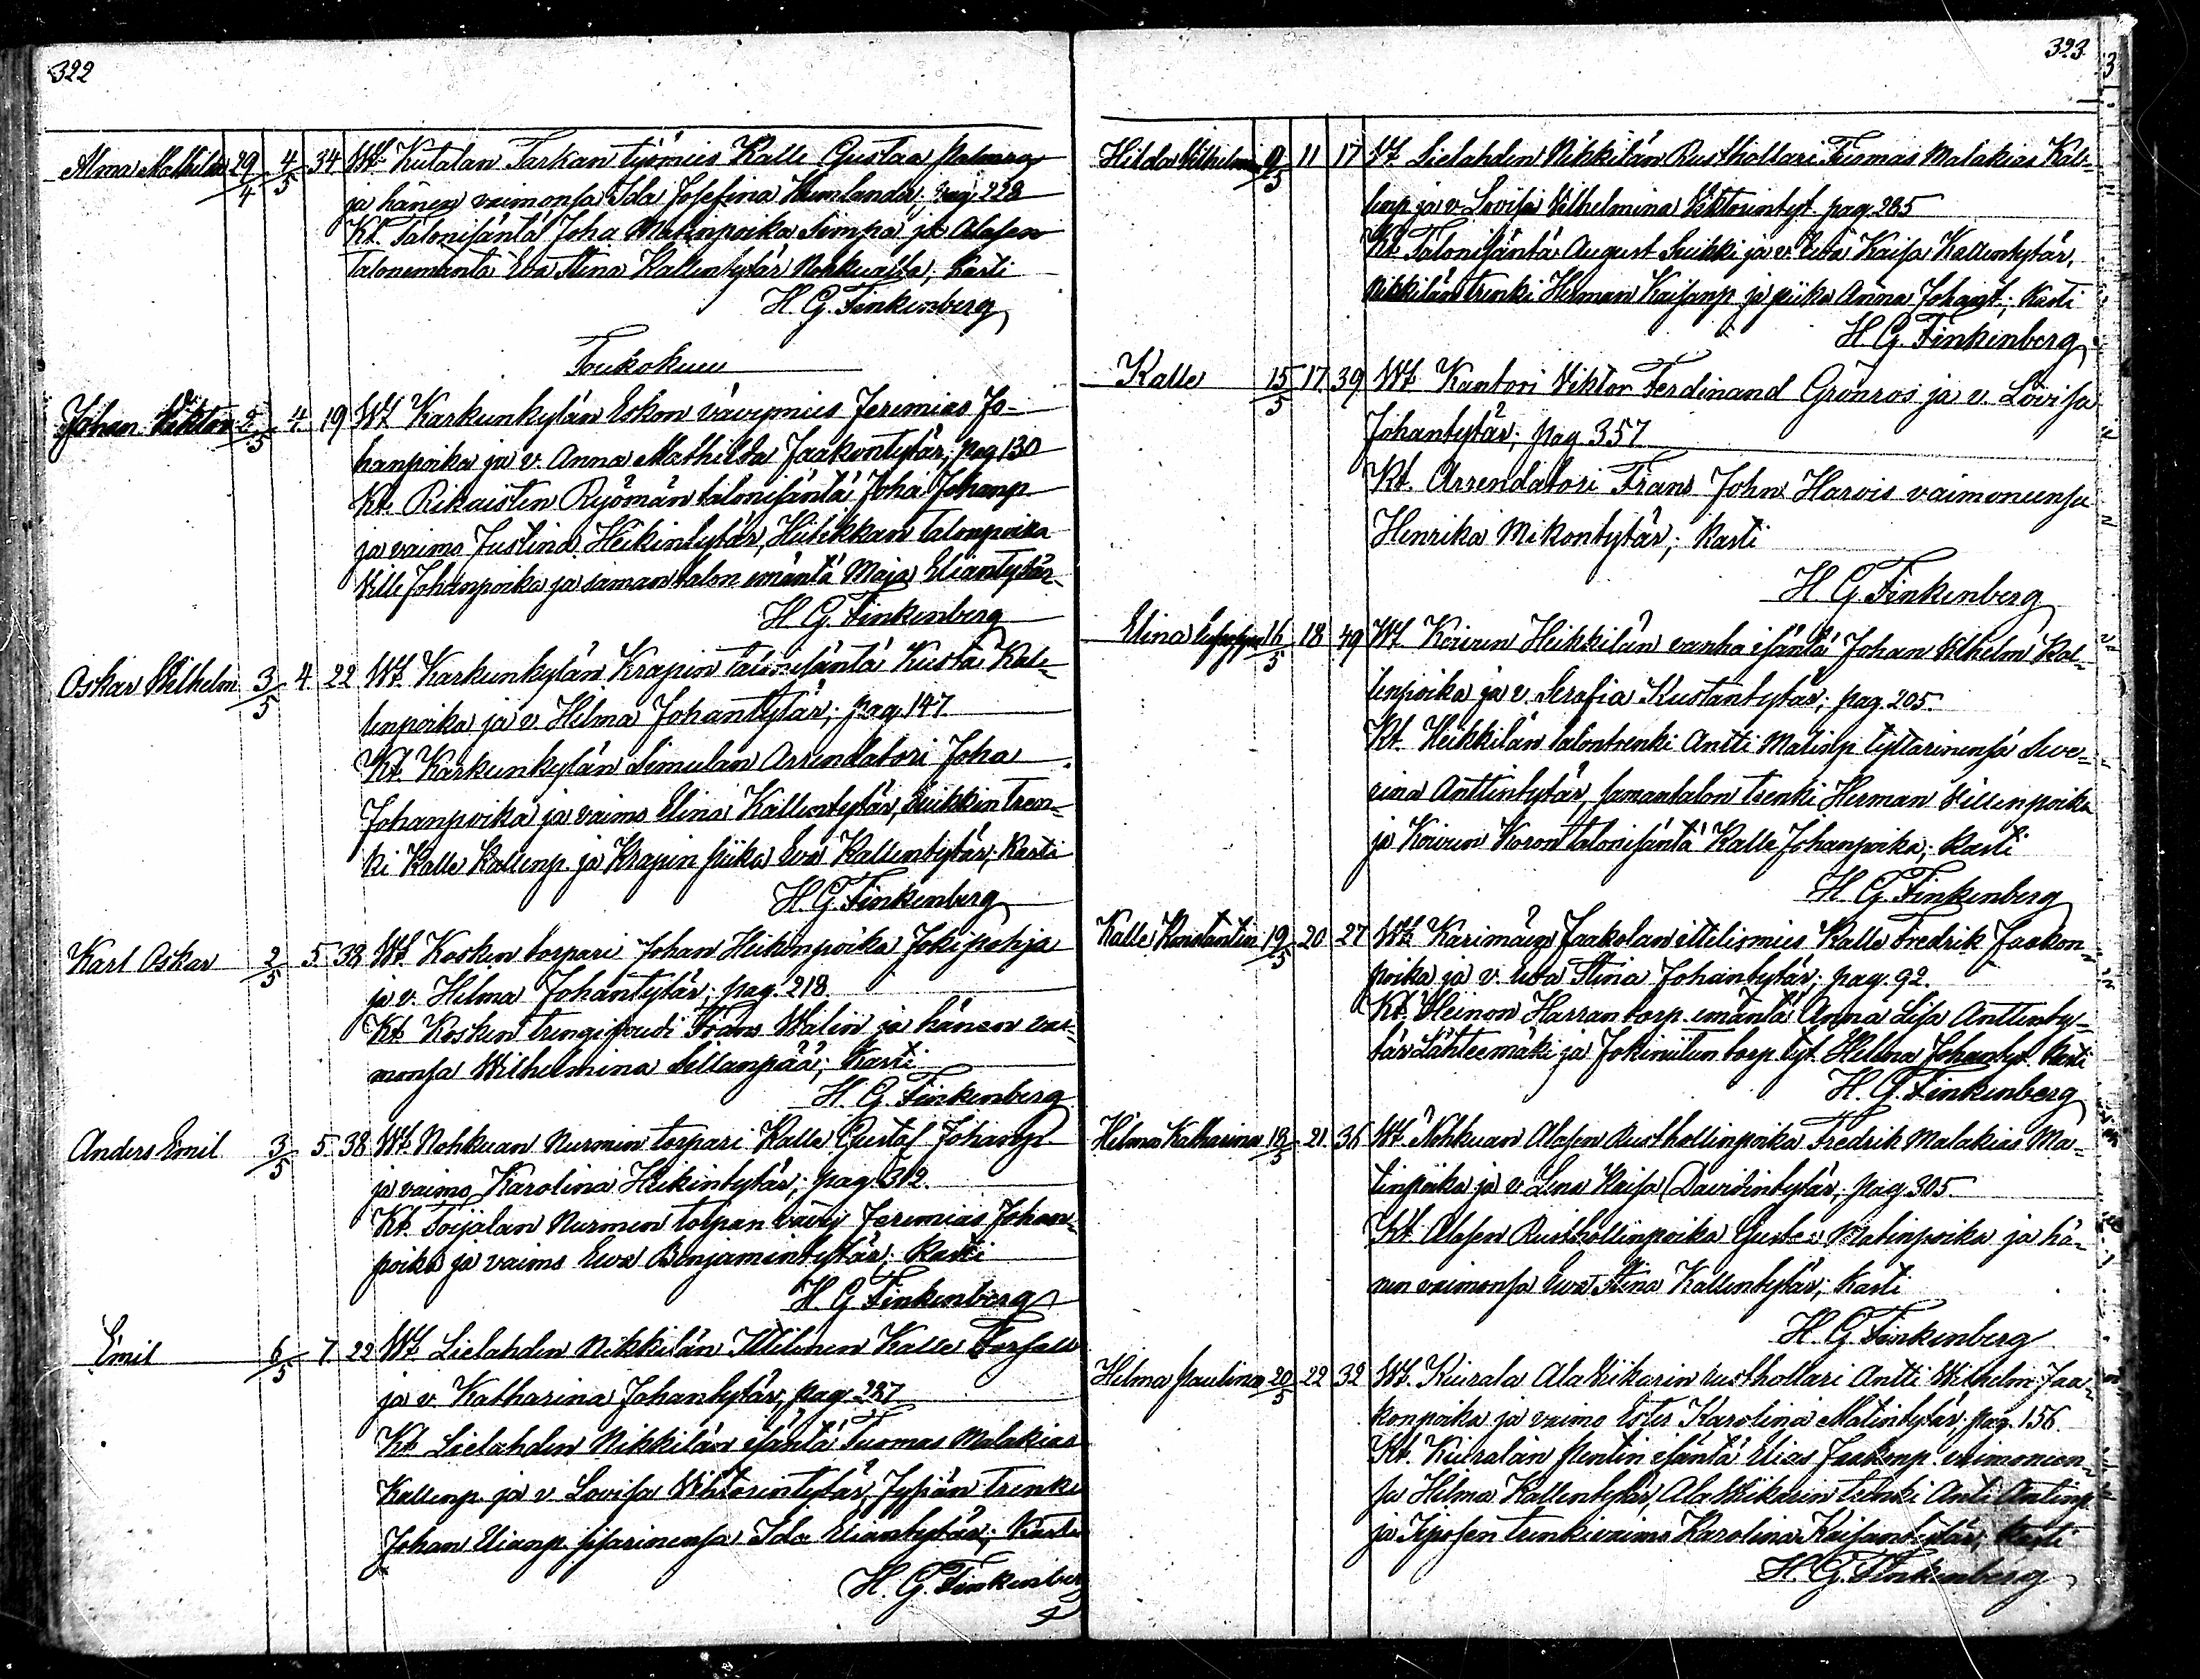 322
Alma Mathilda 29/4 4/5 34 Wt. Kutalan Tarkan työmies Kalle Gustaa Palmroz
ja hänen vaimonsa Ida Josefina Kumlander; pag. 228
Kt. Talonisäntä Joha Matinpoika Simpa ja Alasen
talonemäntä Eva Stina Kallentytär Nohkualta; Kasti
H. G. Finkenberg
Toukokuu
Johan Viktor 2/5 4 19 Wt Karkunkylän Eskon vävymies Jeremias Jo-
hanpoika ja v. Anna Mathilda Jaakontytär; pag 130
Kt. Rikaisten Ryömän talonisäntä Joha Johanp.
ja vaimo Justina Heikintytär, talonpoika
Ville Johanpoika ja saman talon emäntä Maja Eliantytär
H. G. Finkenberg
Oskar Vilhelm 3/5 4 22 Wt. Karkunkylän Krapin talonisäntä Kusta Kal-
lenpoika ja v. Hilma Johantytär; pag. 147
Kt. Karkunkylän Simulan Arrendatori Joha
Johanpoika ja vaimo Elina Kallentytär, Suikkin tren-
ki Kalle Kallenp. ja Krapin piika Eva Kallentytär; Kasti
H. G. Finkenberg
Karl Oskar 2/5 5 38 Wt. Kosken torpari Johan Heikinpoika Jokipohja
ja v. Hilma Johantytär; pag. 218.
Kt. Kosken trengipoudi Frans Walin ja hänen vai-
monsa Wilhelmina Sillanpää; Kasti
H. G. Finkenberg
Anders Emil 3/5 5 38 Wt. Nohkuan Nurmin torpari Kalle Gustaf Johanp
ja vaimo Karolina Heikintytär; pag. 312.
Kt. Soijalan Nurmen torpan vävy Jeremias Johan-
poika ja vaimo Ewa Benjamintytär; Kasti
H. G. Finkenberg
Emil 6/5 7 22 Wt. Lielahden Nikkilän Itellinen Kalle Forsell
ja v Katharina Johantytär; pag. 287
Kt. Lielahden Nikkilän isäntä Tuomas Malakias
Kallenp. ja v. Lovisa Viktorintytär, trenki
Johan Elianp. sisarinensa Ida Eliantytär; Kasti
H. G. Finkenberg
323
Hilda Vilhelmi 9/5 11 17 Wt Lielahden Nikkilän Rusthollari Tuomas Malakias Kal-
lenp ja v. Lovisa Vilhelmina Viktorintyt. pag. 285
Kt. Talonisäntä August Suikki ja v. Eva Kaisa Kallentytär,
Nikkilän trenki Herman Kaisanp ja piika Anna Johant.; Kasti
H. G. Finkenberg
Kalle 15/5 17 39 Wt Kantori Viktor Ferdinand Grönros ja v. Lovisa
Johantytär; pag 357
Kt. Arrendatori Frans John Harvis vaimoneensa
Henrika Mikontytär; Kasti
H. G. Finkenberg
Elina 16/5 18 49 Wt Koivun Heikkilän vanha isäntä Johan Vilhelm Kal-
lenpoika ja v. Serafia Kustantytär; pag. 205.
Kt. Heikkilän talontrenki Antti Matinp tyttärinensä Seve-
rina Anttintytär, samantalon trenki Herman Villenpoika
ja Koivun Koron talonisäntä Kalle Johanpoika; Kasti
H. G. Finkenberg
Kalle Konstantin 19/5 20 27 Wt. Karimäen Jaakolan ittelismies Kalle Fredrik Jaakon-
poika ja v. Eva Stina Johantytär; pag. 92.
Kt. Heinon Harran torp. emäntä Anna Lisa Anttinty-
tär Lähteemäki ja Jokiniitun torp. tyt. Hilma Johantyt. Kasti
H. G. Finkenberg
Hilma Katharina 19/5 21 36 Wt. Nohkuan Alasen Rusthollinpoika Fredrik Malakias Ma-
tinpoika ja v. Lena Kaisa Davidintytär; pag. 305
Kt. Alasen Rusthollinpoika Gustaa Matinpoika ja hä-
nen vaimonsa Eva Stina Kallentytär; Kasti
H. G. Finkenberg
Hilma Paulina 20/5 22 32 Wt. Kiurala Ala Wikarin rusthollari Antti Wilhelm Jaa-
konpoika ja vaimo Ester Karolina Matintytär; pag. 156.
Kt. Kiuralan Pentin isäntä Elias Jaakonp. vaimoneen-
sa Hilma Kallentytär, Ala Wikarin trenki Anti Antinp.
ja trenkivaimo Karolina Kaisantytär; Kasti
H. G. Finkenberg